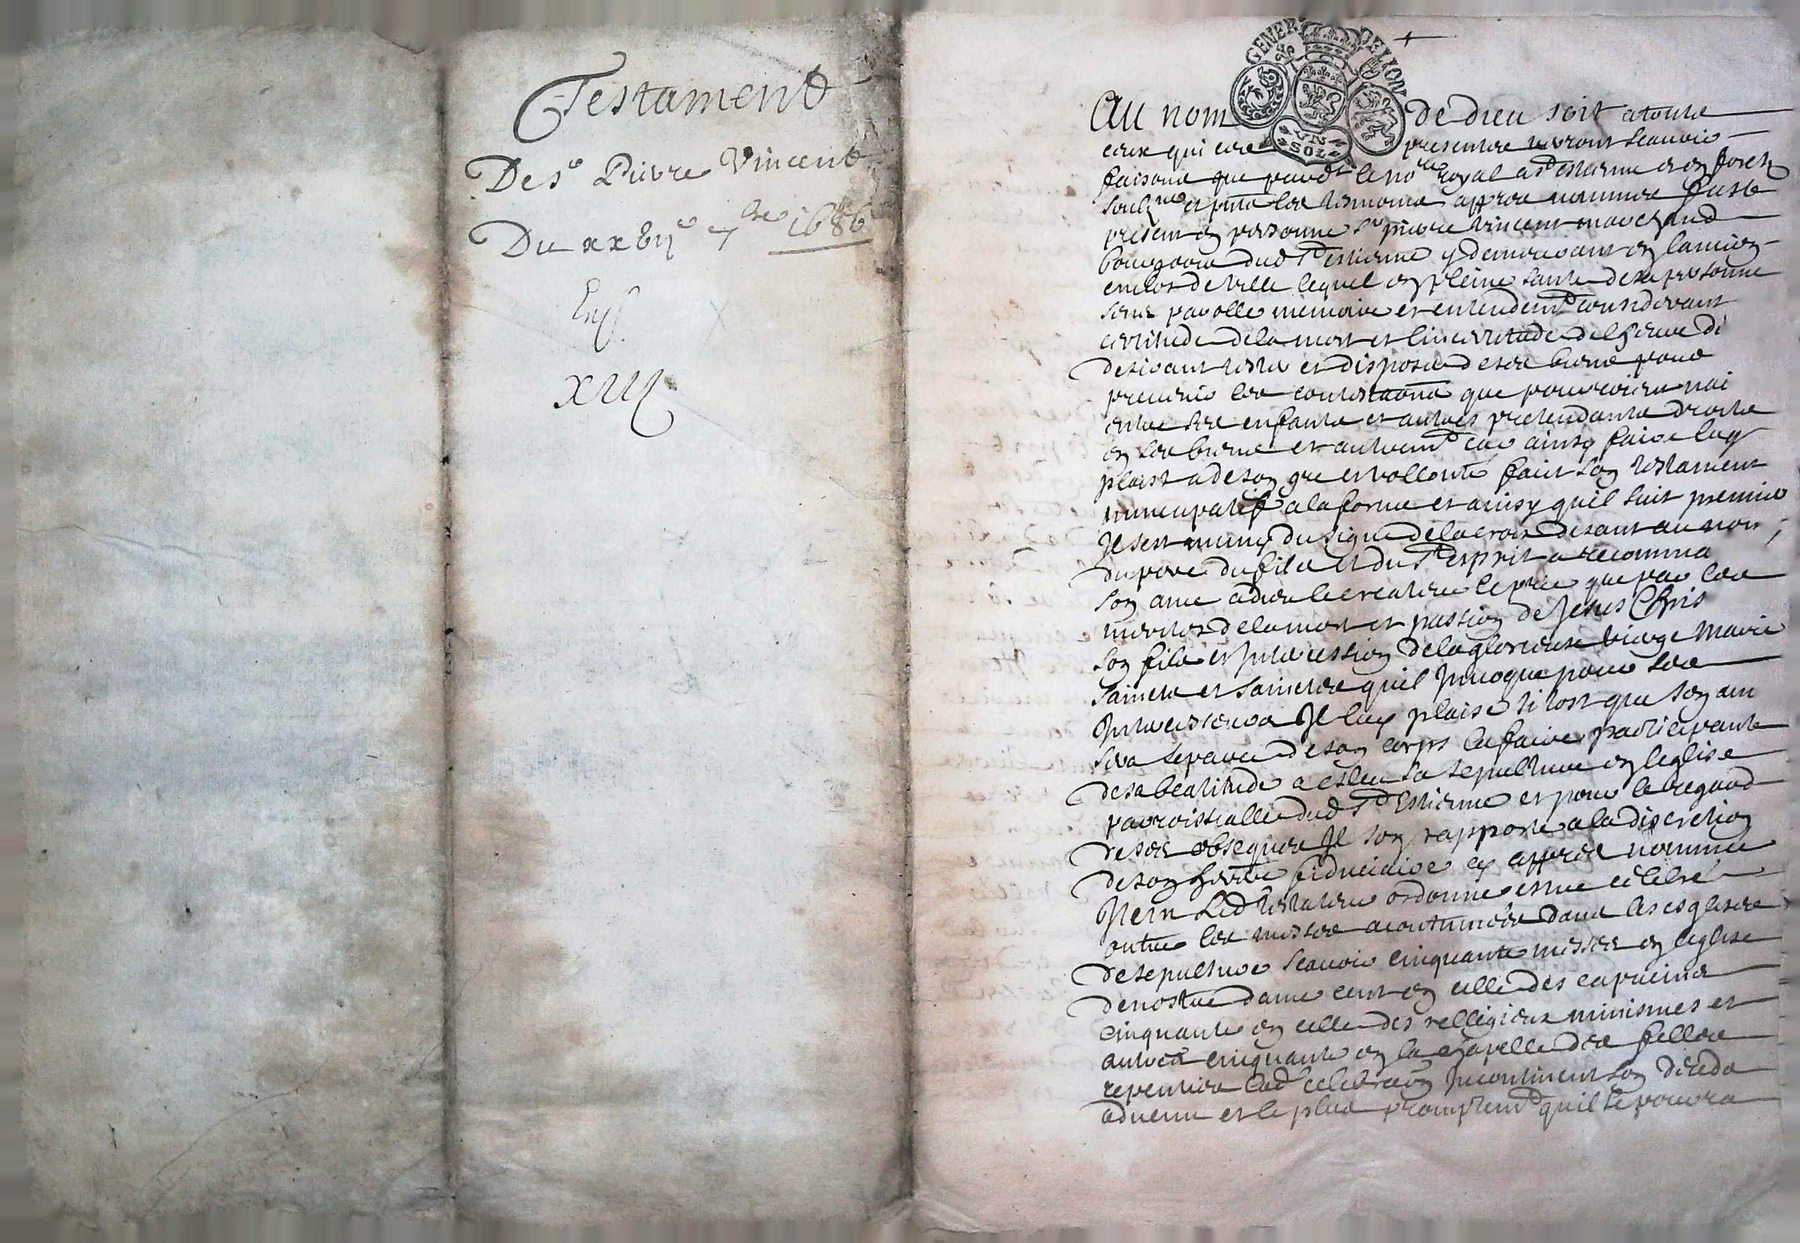 Testament
De Sr Pierre Vincent
Du xxviie 7bre 1686
XIII
GENERALITE DE LION
UN SOL
Au nom de dieu soit a toute
ceux qui ces presentes verront scavoir
faisons que pardt le nore royal a St estienne en forestz
soubzne et pnts les tesmoins appres nommes fust
present en personne sr pierre vincent marchand
bourgeois dud St estienne y demeurant en la rue
enclos de ville lequel en pleine sante de sa personne
sens parolle memoire et entendemt considerant
certitude de la mort et lincertitude de lheure di
desirant tester et disposer de ses biens pour
prevenir les contestaons que pourroient nai
entre ses enfants et autres pretendants droits
en ses biens et autremt car ainsy faire luy
plaist a de son gre et vollonte faict son testament
nuncupatif a la forme et ainsy quil suit premier
Il sest muny du signe de la croix disant au nom
du pere du fils et du St esprit a recomma
son ame a dieu le createur le prie que par les
merites de la mort et passion de Jesus Chris
son fils et intercession de la glorieuse vierge Marie
saincts et sainctes quil Invoque pour ses
Intercesseurs Il luy plaise si tost que son am
sera separee de son corps la faire participante
de sa beatitude a esleu sa sepulture en leglise
parroissialle dud St Estienne et pour le regard
de ses obseques Il sen rapporte a la discretion
de son heritier fiduciaire cy appres nomme
Item Led testateur ordonne estre celebré
outre les messes acoutumées dans les esglises
de sepulture scavoir cinquante messes en leglise
de nostre dame cent en celle des capucins
cinquante en celle des religieux minismes et
autres cinquante en la chapelle des filles
repenties lad celebraon Incontinent son deceds
advenu et le plus promptemt quil se pourra